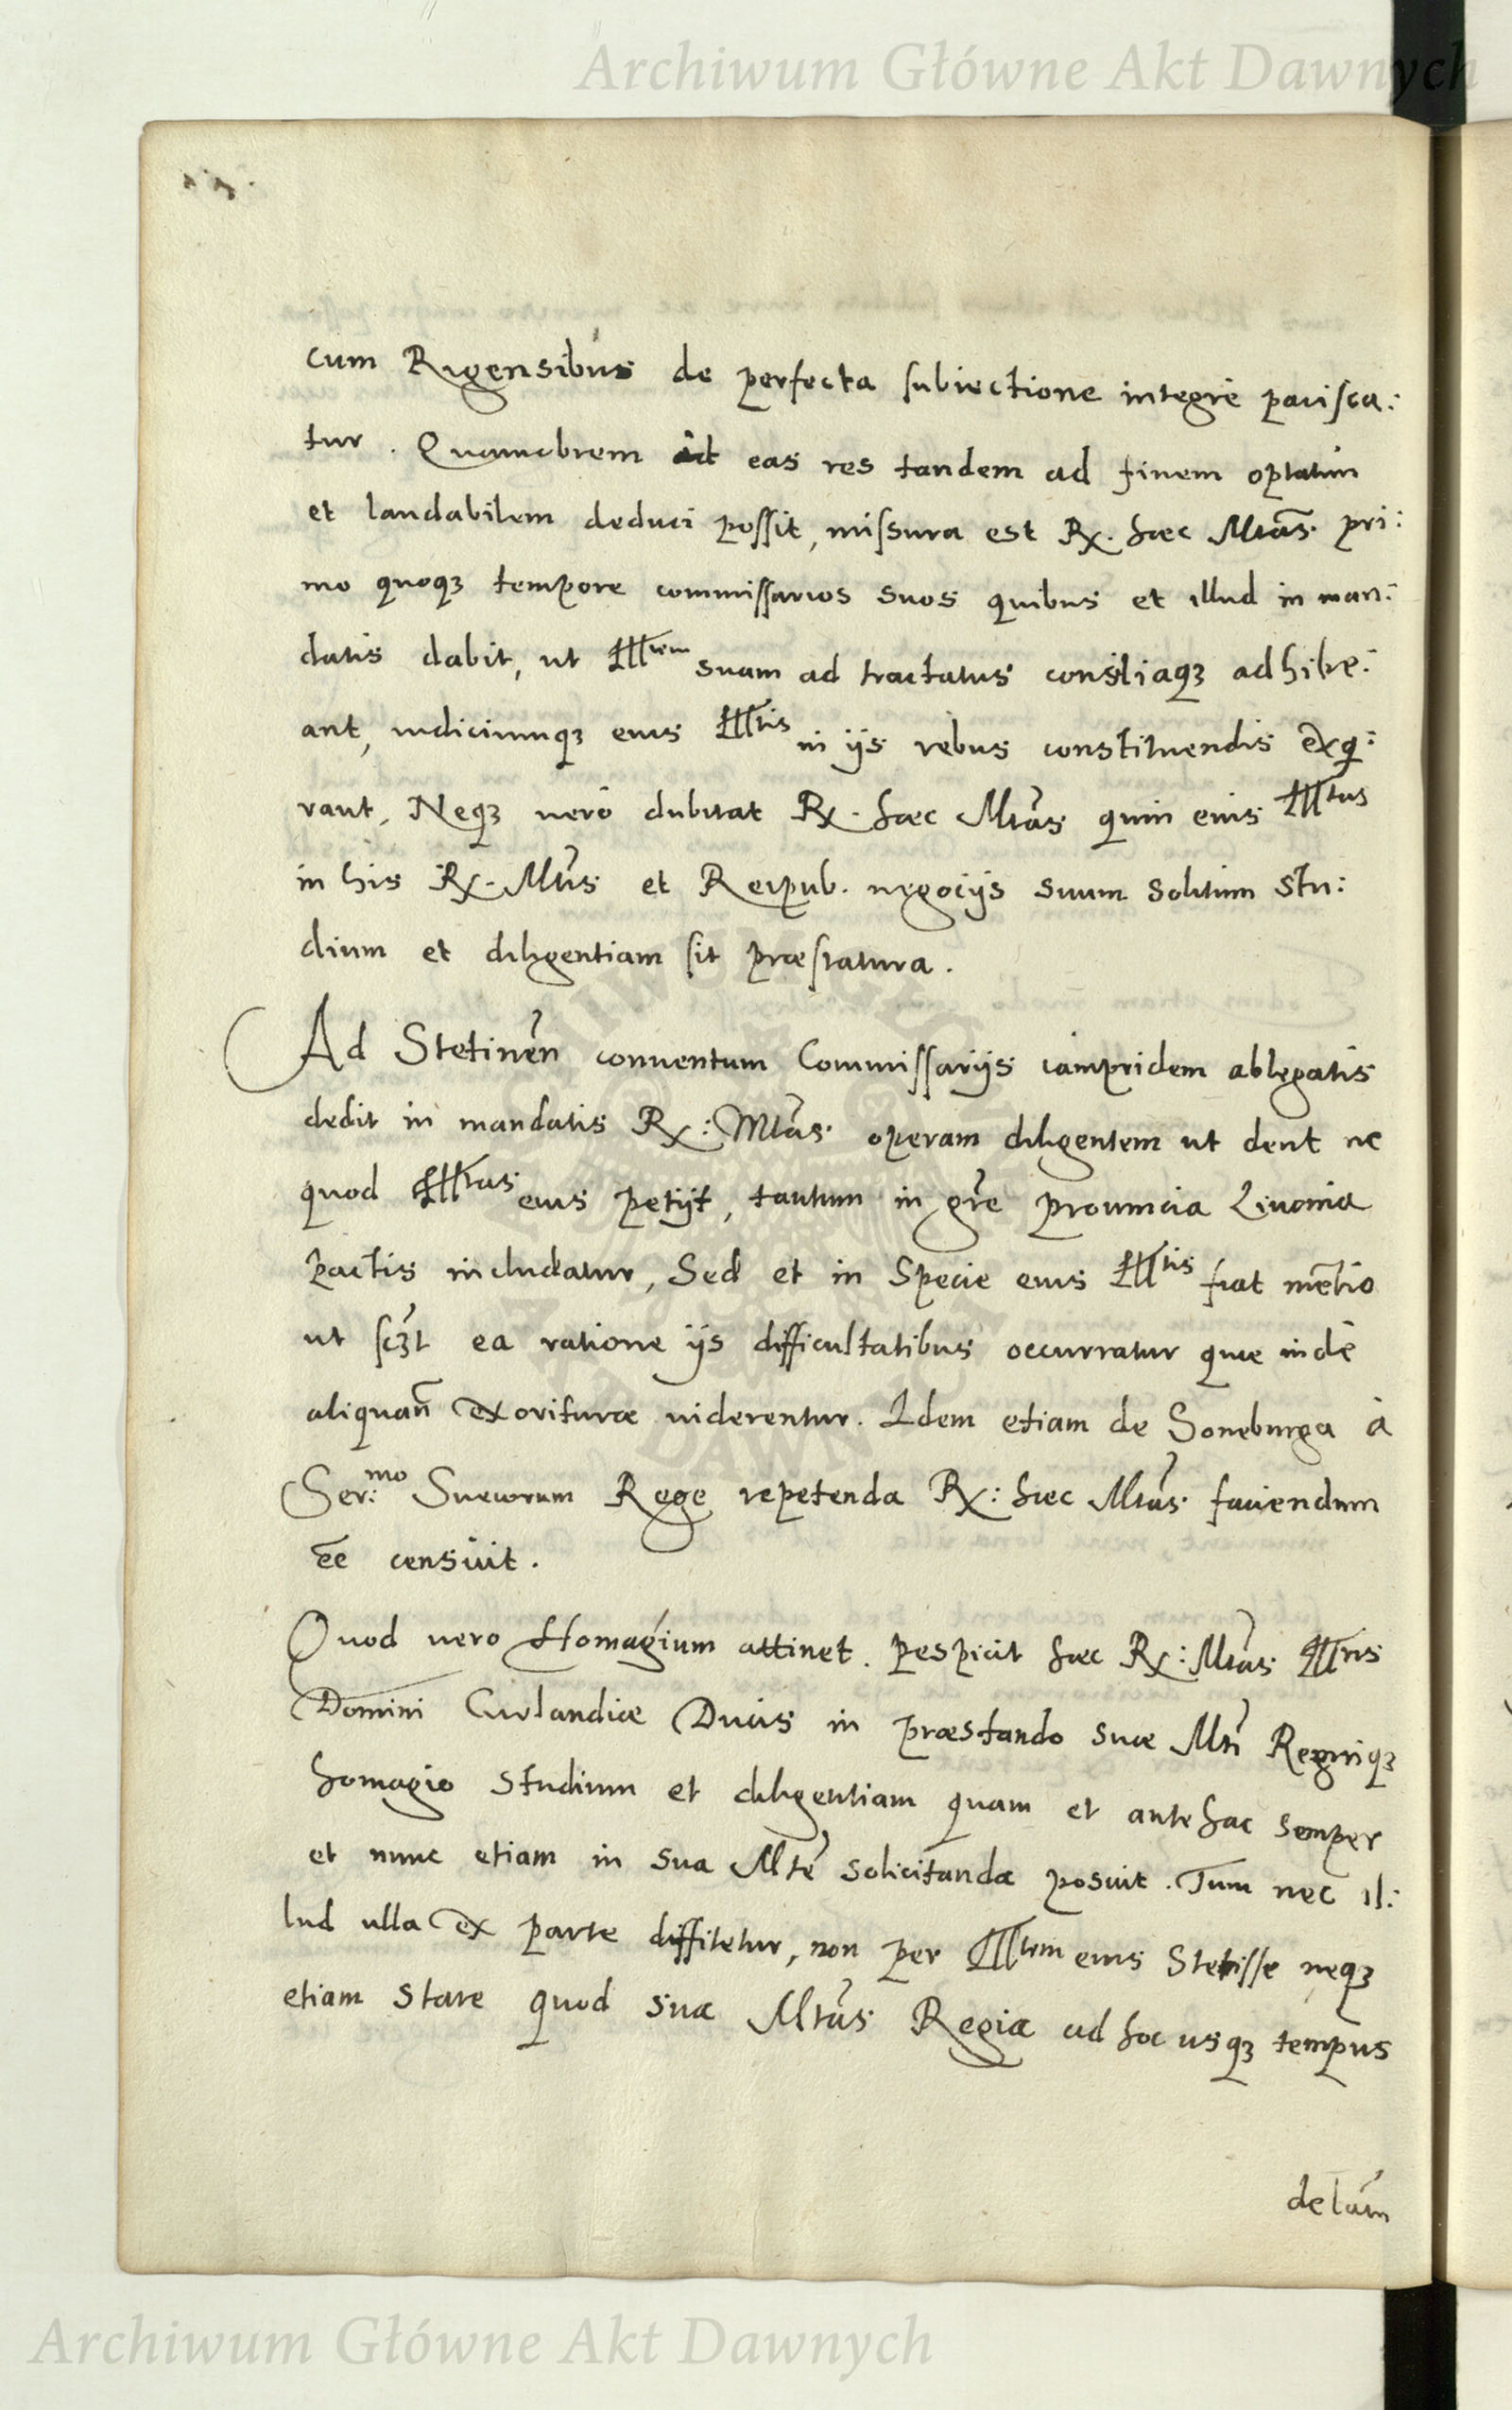 Archiwum Główne Akt Dawnych
cum Rigensibus de perfecta subiectione integrè pacisca:
tur. Quamobrem ut eas res tandem ad finem optatum
et laudabilem deduci possit, missura est Rx. haec Mtas. pri:
mo quoqꝫ tempore commissarios suos quibus et illud in man:
datis dabit, ut Illtem suam ad tractatus consiliaqꝫ adhibe:
ant, iudiciumqꝫ eius Illtis in ijs rebus constituendis exqi:
rant, Neqꝫ uerò dubitat Rx. haec Mtas quin eius Illtas
in his Rx. Mtis et Reipub. negocijs suum solitum stu:
dium et diligentiam sit praestatura.
Ad Stetinen conuentum Commissarijs iampridem ablegatis
dedit in mandatis Rx: Mtas. operam diligentem ut dent ne
quod Illtas eius petijt, tantum in gre prouincia Liuonia
pactis includatur, Sed et in Specie eius Illtis fiat metio
ut scꝫt ea ratione ijs difficultatibus occurratur quae indè
aliquan exoriturae uiderentur. Idem etiam de Soneburga à
Ser:mo Sueuorum Rege repetenda Rx: haec Mtas. faciendum
ee censuit.
Quod uero Homagium attinet. pespicit haec Rx: Mtas Illris
Domini Curlandiae Ducis in praestando suae Mti Regniqꝫ
homagio studium et diligentiam quam et antehac semper
et nunc etiam in sua Mte solicitanda posuit. Tum nec il:
lud ulla ex parte diffitetur, non per Illtem eius Stetisse neqꝫ
etiam stare quod suae Mtas Regiae ad hoc usqꝫ tempus
delam
Archiwum Główne Akt Dawnych